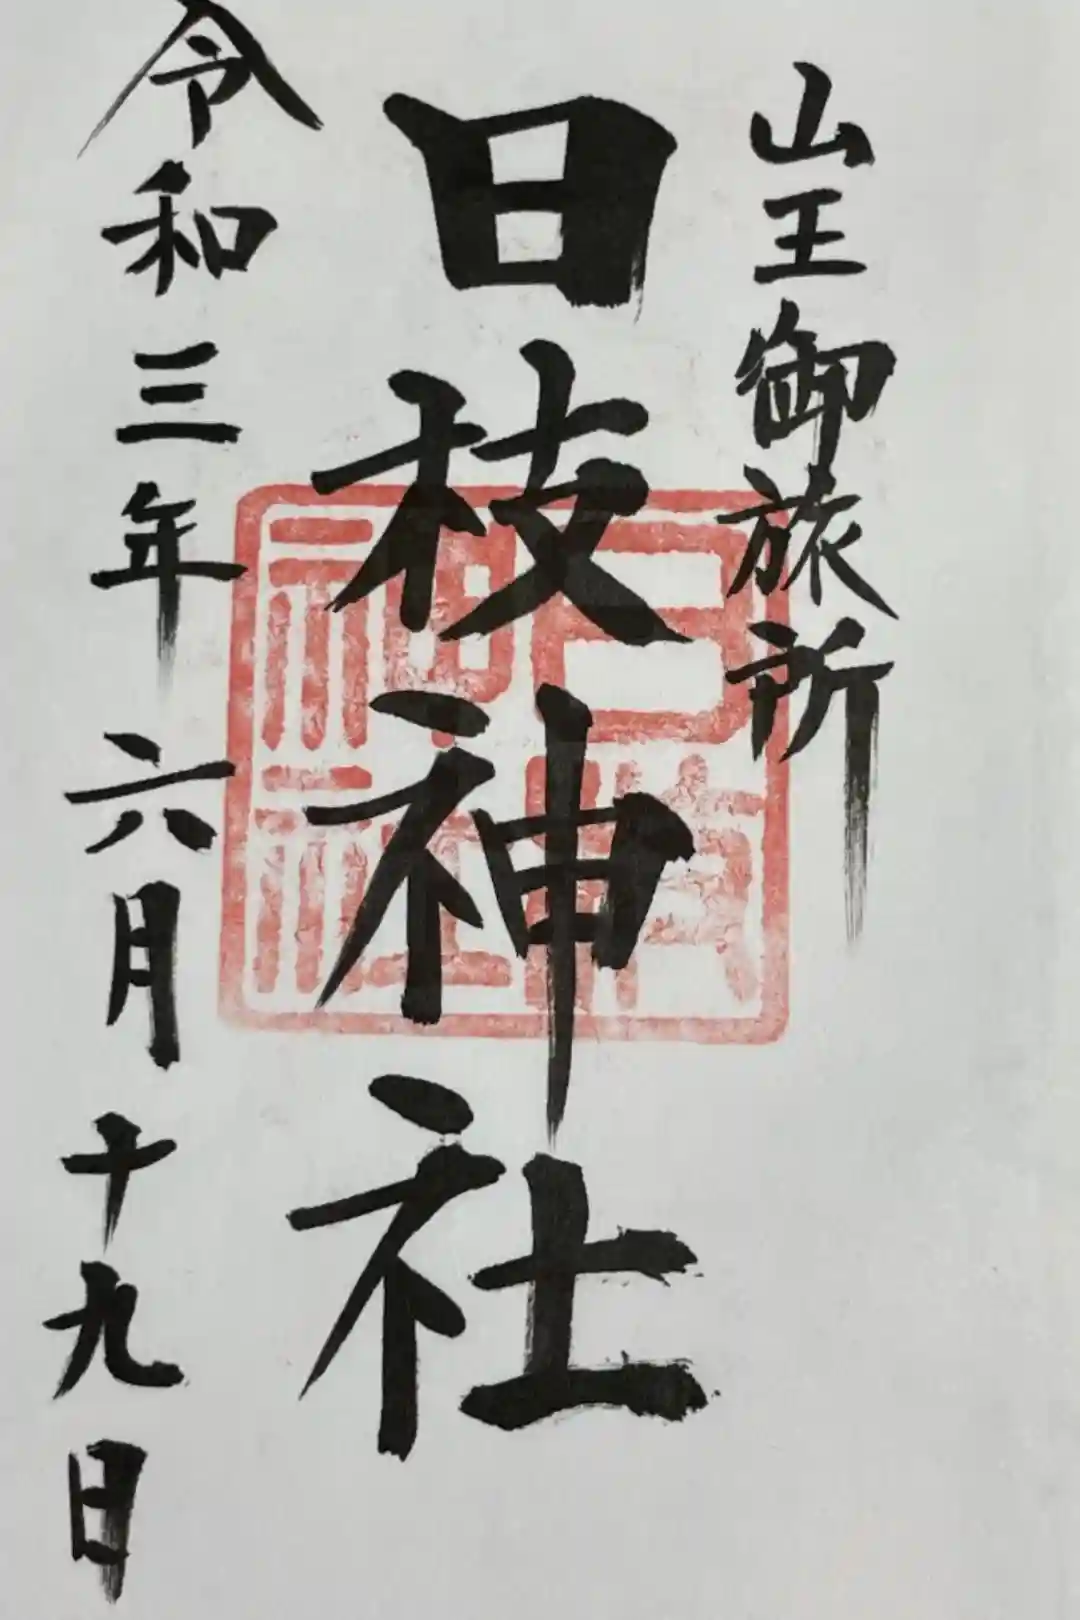 山王御旅所
日枝神社
令和三年六月十九日
日枝
神社